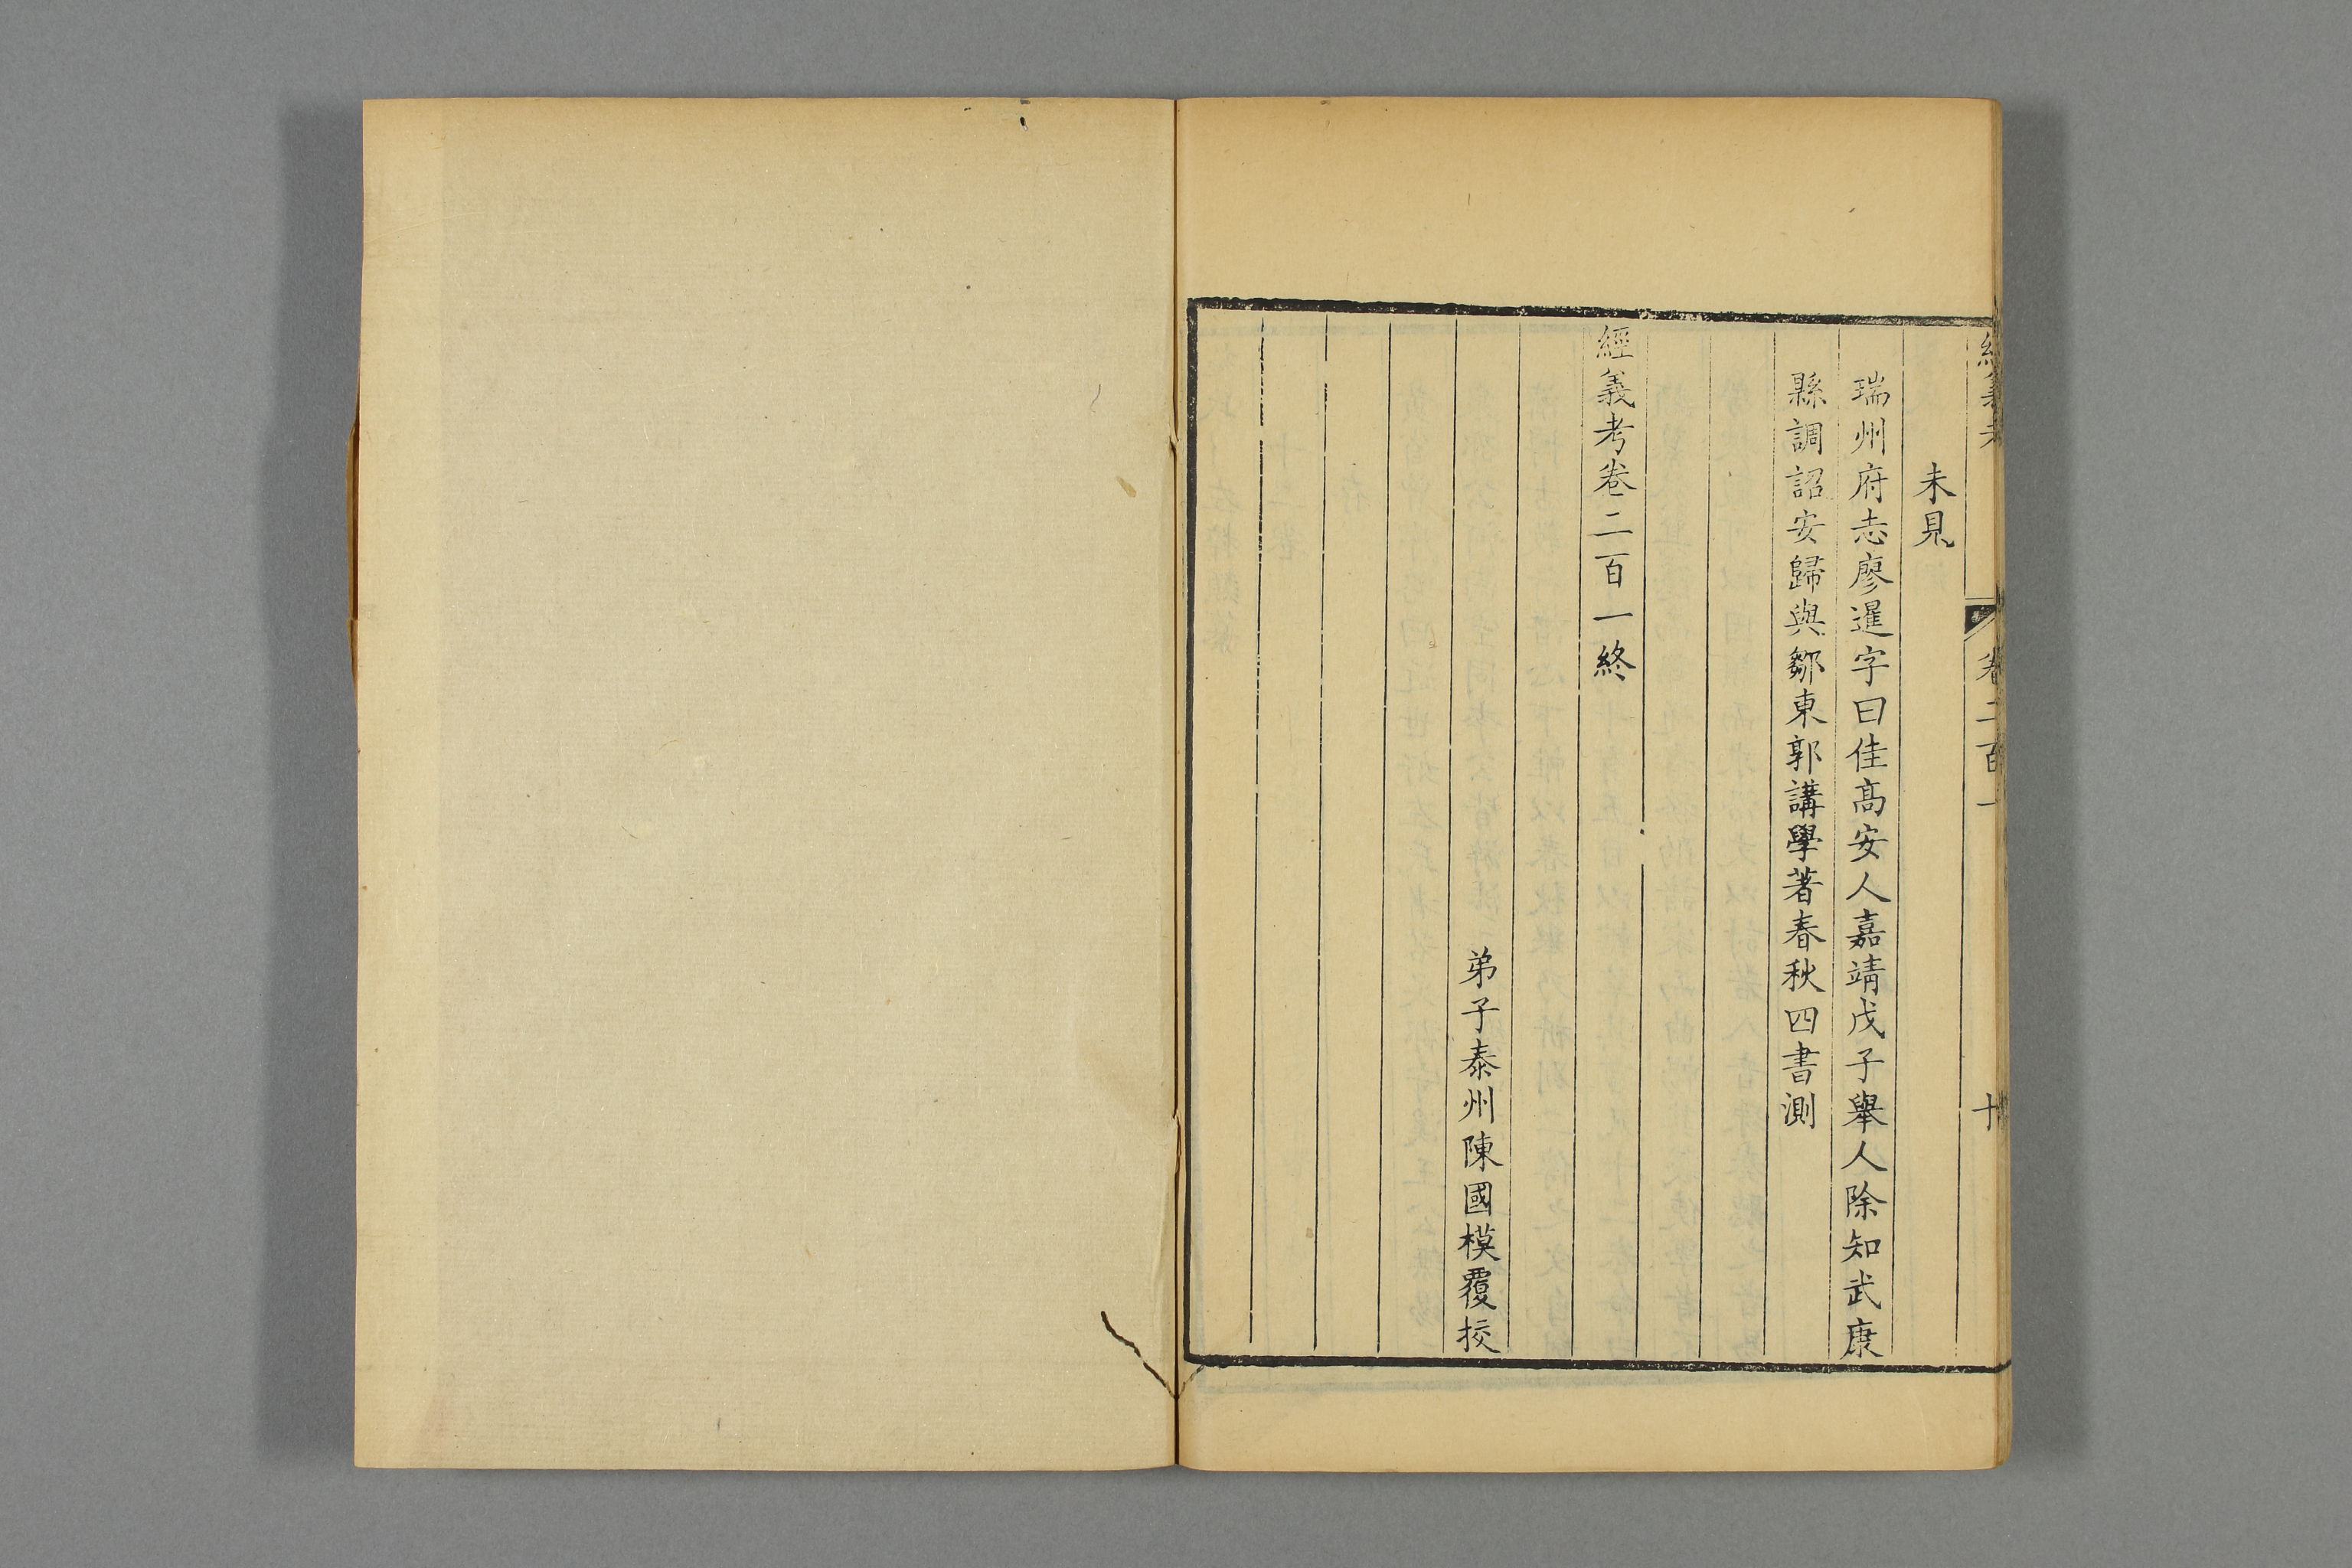 經義考 卷二百一 十
未見
瑞州府志廖暹字曰佳高安人嘉靖戊子舉人除知武康
縣調詔安歸與鄒東郭講學著春秋四書測
經義考卷二百一終
弟子泰州陳國模覆挍